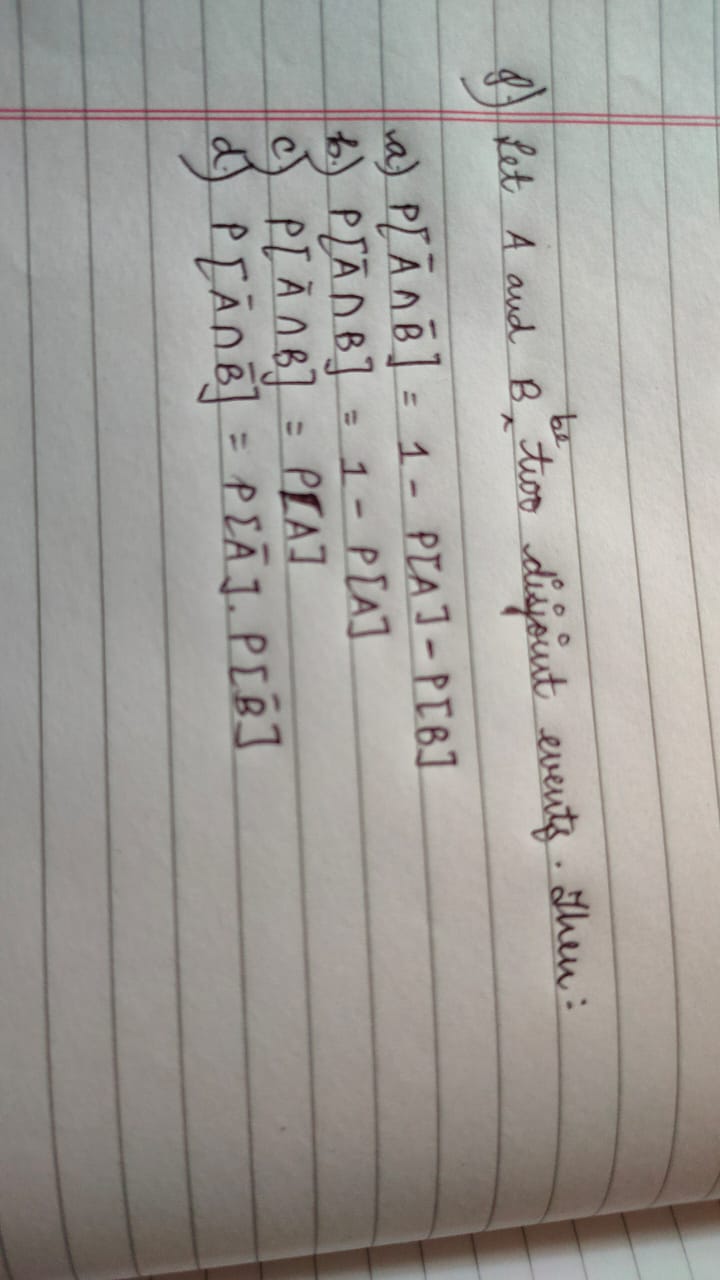 Q.) Let A and B be two disjoint events. Then:
a) P[Ā∩B̄] = 1 - P[A] - P[B]
b.) P[Ā∩B] = 1 - P[A]
c) P[Ā∩B] = P[A]
d.) P[Ā∩B̄] = P[Ā]. P[B̄]